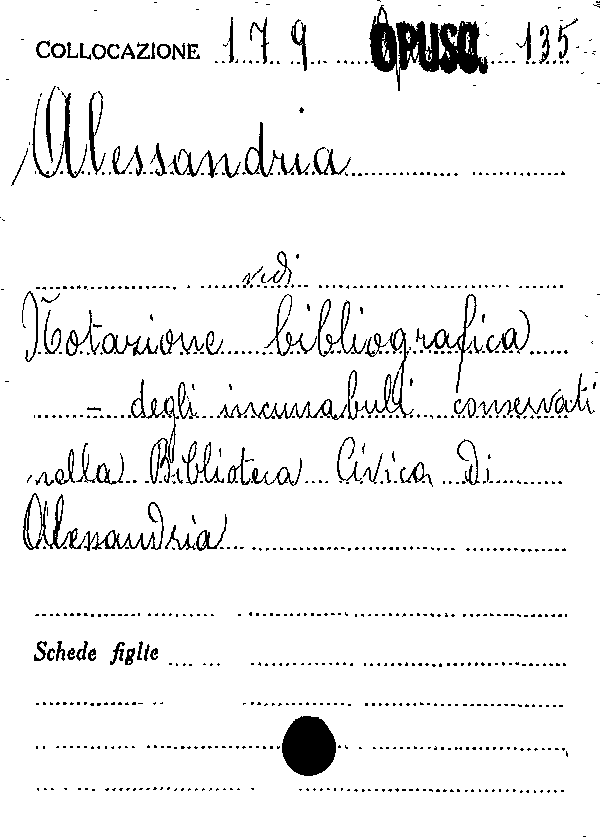 COLLOCAZIONE 179 OPUSC. 135
Alessandria
vedi
Notazione bibliografica
- degli incunabuli conservati
nella Biblioteca Civica di
Alessandria
Schede figlie